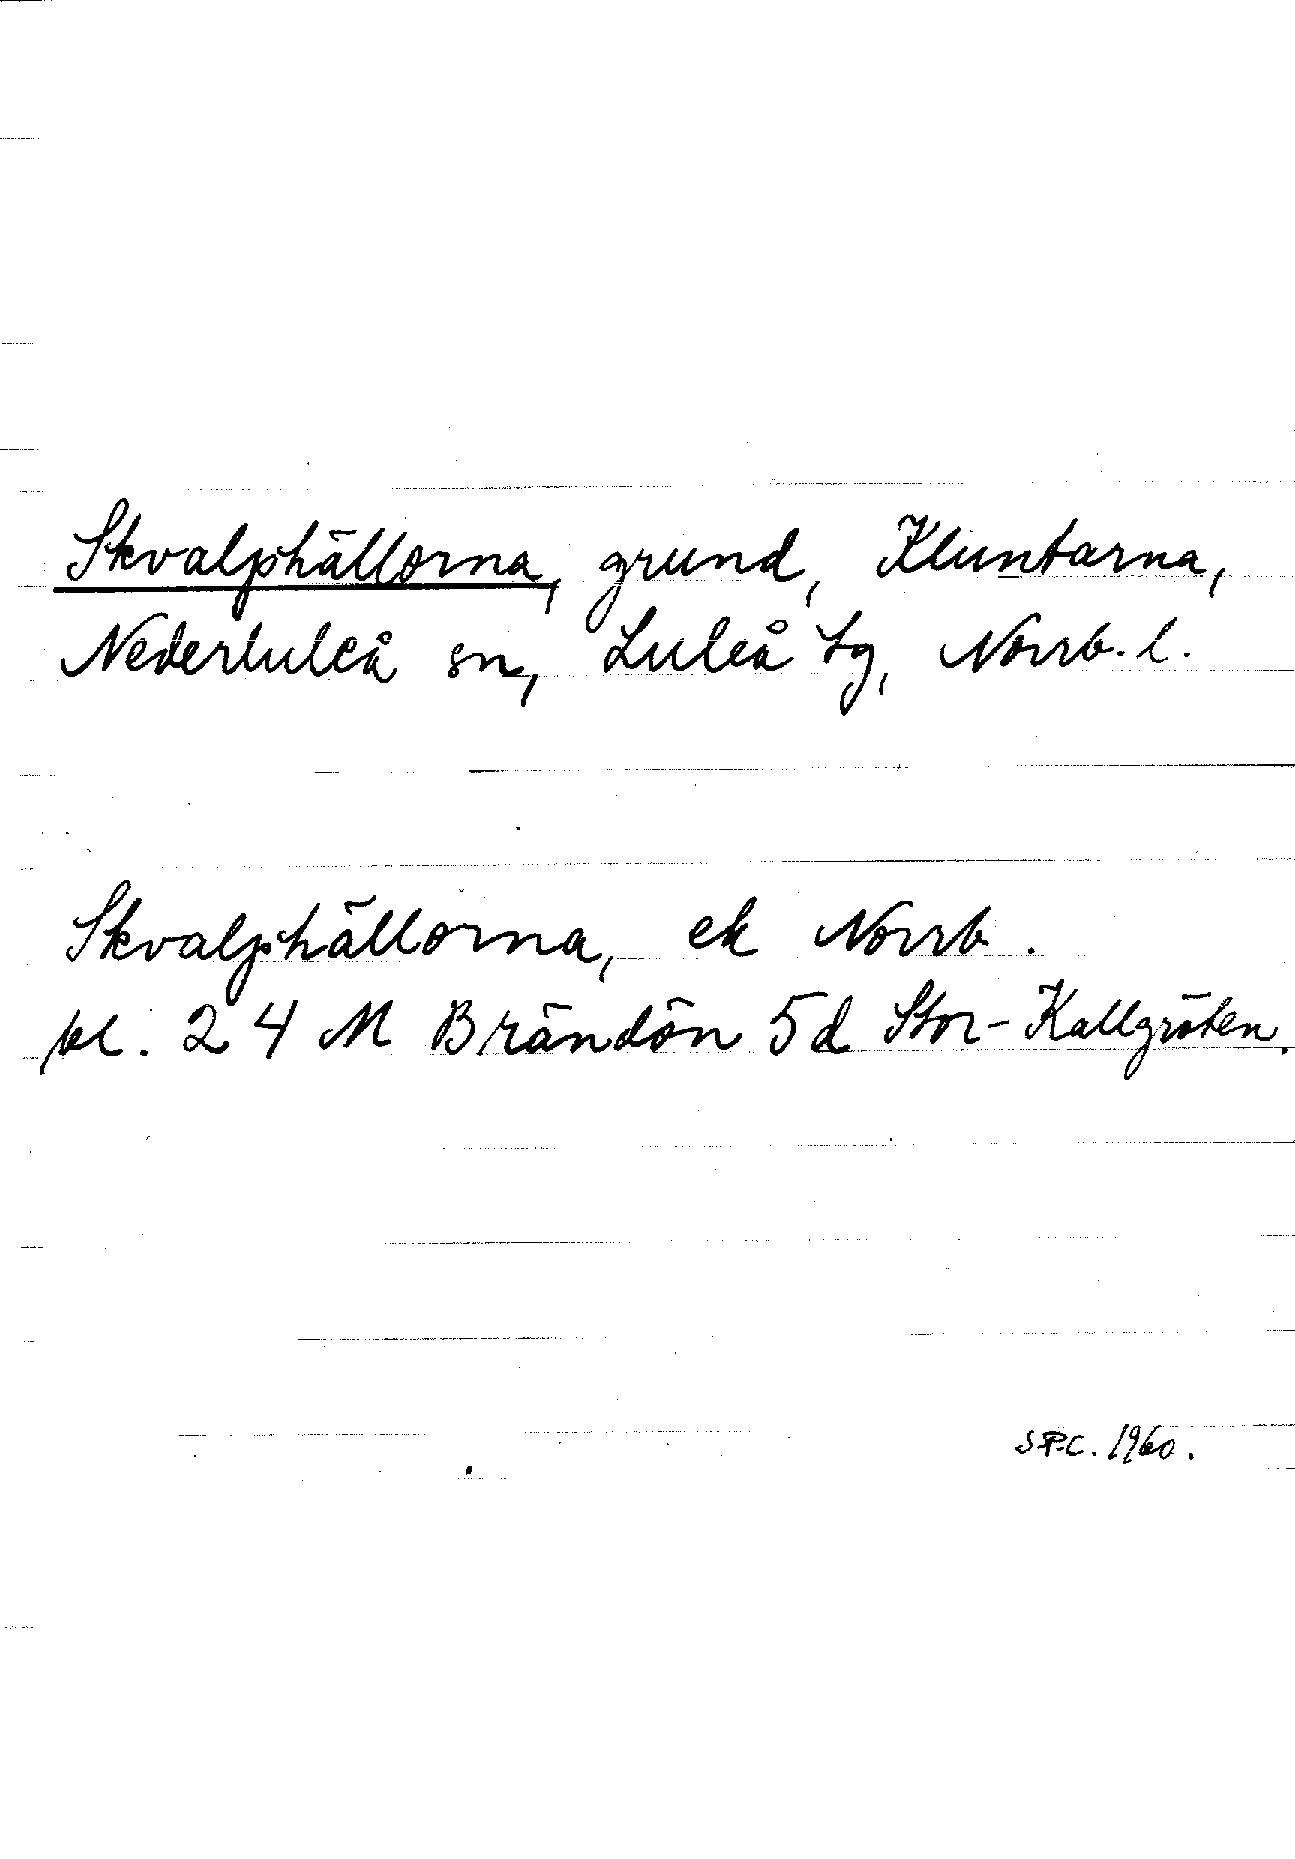 Skvalphällorna, grund, Kluntarna,
Nederluleå sn, Luleå tg, Norrb. l.
Skvalphällorna, ek Norrb.
bl. 24 M Brändön 5d Stor-Kallgröten.
SPC. 1960.